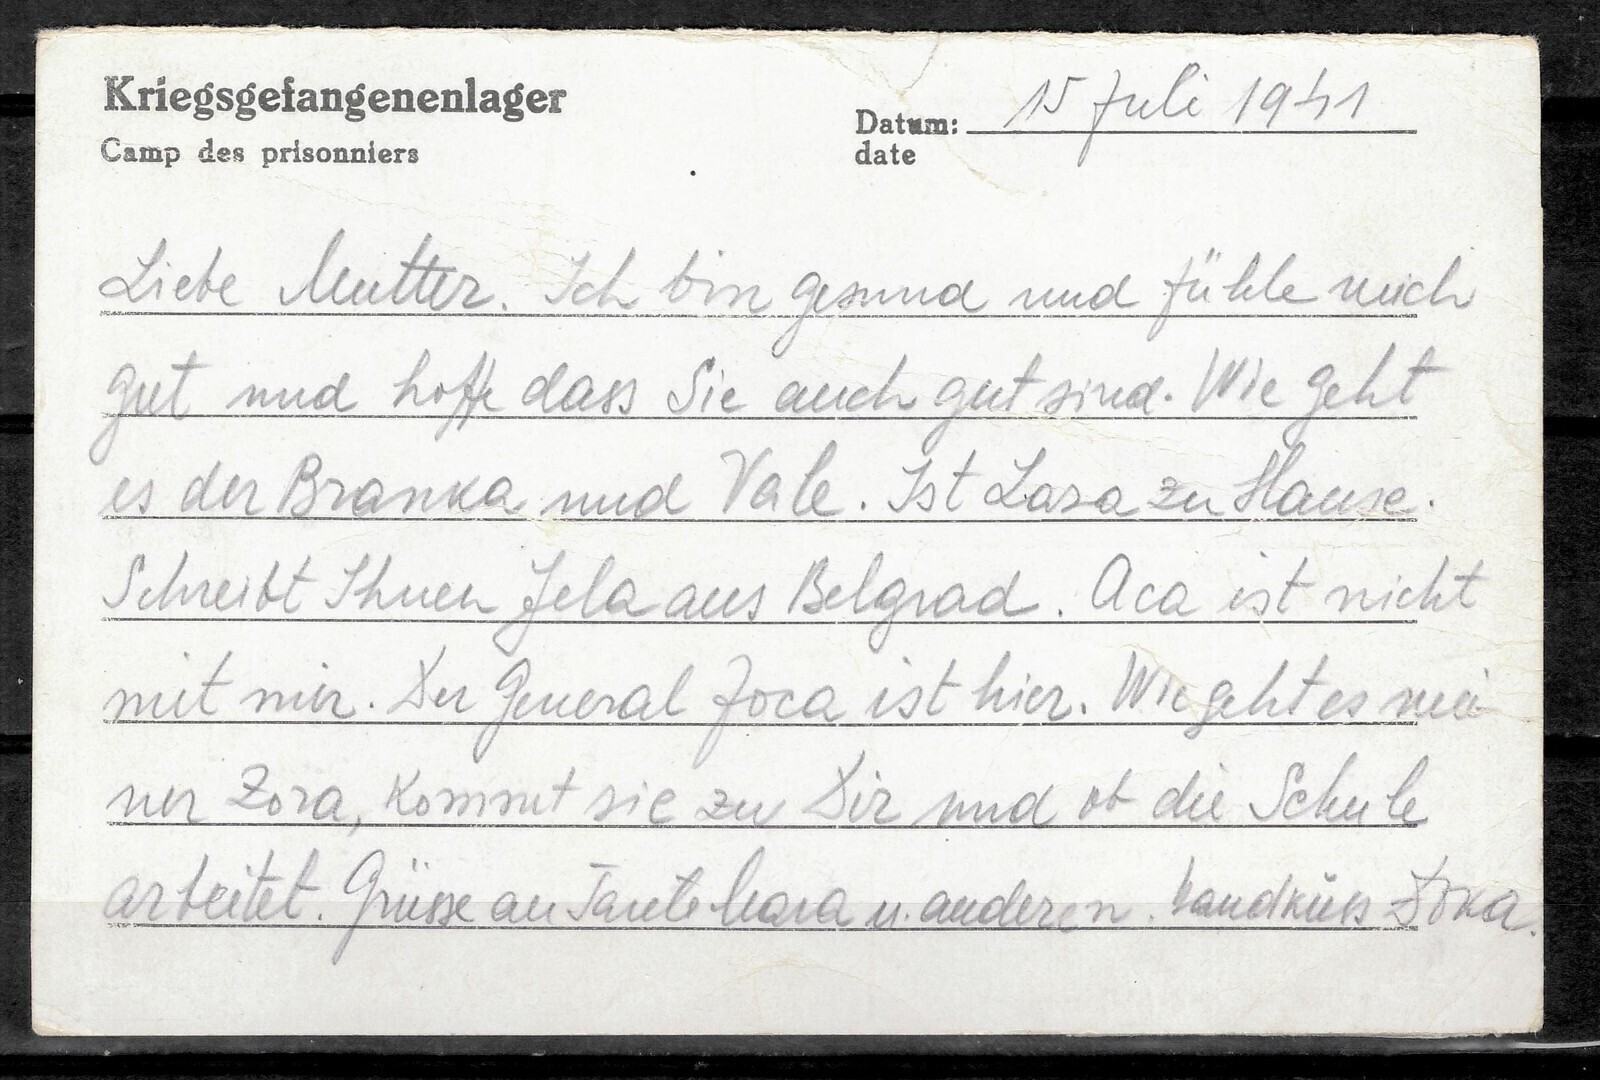 Kriegsgefangenenlager
Camp des prisonniers
Datum: 15 Juli 1941
date
Liebe Mutter. Ich bin gesund und fühle mich
gut und hoffe dass Sie auch gut sind. Wie geht
es der Branka und Vale. Ist Laza zu Hause.
Schreibt Ihnen Jela aus Belgrad. Aca ist nicht
mit mir. Der General Joca ist hier. Wie geht es mei
ner Zora, kommt sie zu Dir und ob die Schule
arbeitet. Grüsse an Tante Mara u. anderen. Handküss